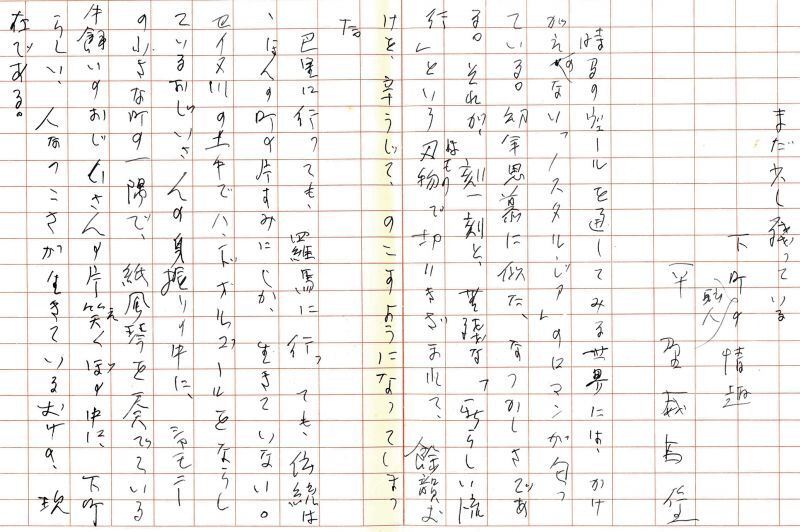 まだ少し残っている
下町の情趣
職人
平野威馬雄
時のヴェールを通してみる世界には、かけ
がえのない「ノスタルジア」のロマンが匂っ
ている。幼年思慕に似た、なつかしさであ
る。それが、刻一刻と、無残な「新らしい流
行」という刃物で切りきざまれて、餘韻だ
はもの
けを、辛うじて、のこすようになってしまっ
た。
巴里に行っても、羅馬に行っても、伝統は
、ほんの町の片すみにしか、生きていない。
セイヌ川の土手でハンドオルゴールをならし
ているおじいさんの身振りの中に、シャモニー
の小さな町の一隅で、紙風琴を奏でている
牛飼いのおじいさんの片笑くぼの中に、下町
え
らしい、人なつこさが生きているだけの、現
在である。